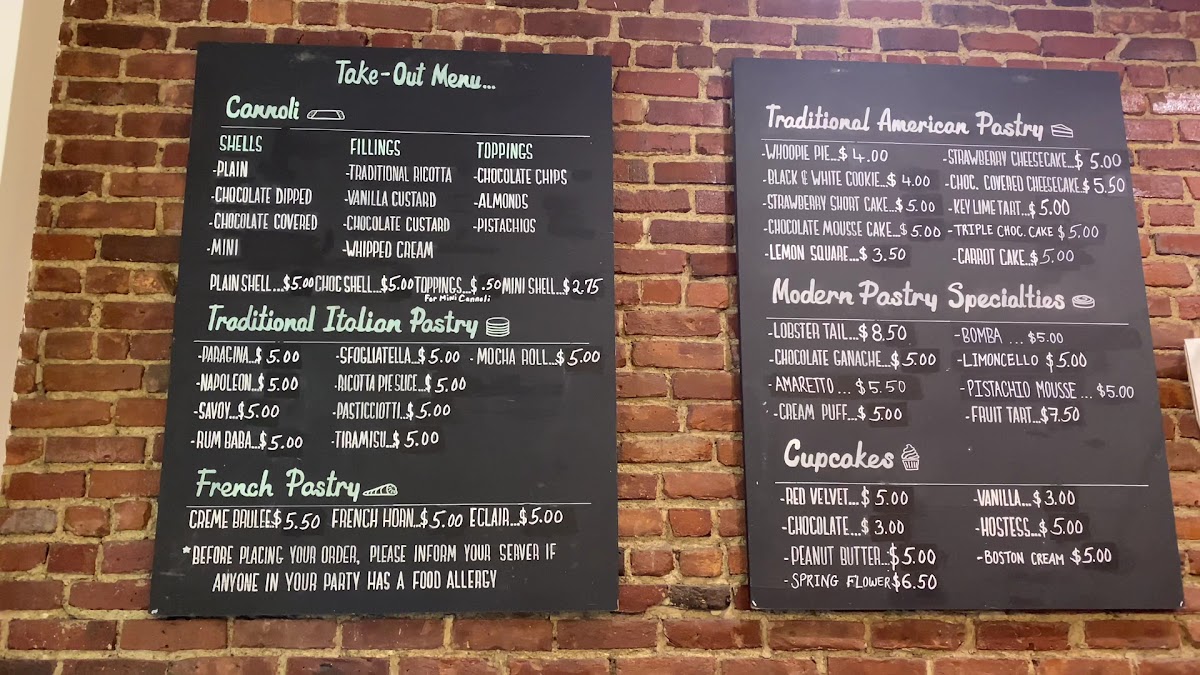 Take-Out Menu...
Cannoli
SHELLS FILLINGS TOPPINGS
-PLAIN -TRADITIONAL RICOTTA -CHOCOLATE CHIPS
-CHOCOLATE DIPPED -VANILLA CUSTARD -ALMONDS
-CHOCOLATE COVERED -CHOCOLATE CUSTARD -PISTACHIOS
-MINI -WHIPPED CREAM
PLAIN SHELL...$5.00 CHOC SHELL...$5.00 TOPPINGS...$.50 MINI SHELL...$2.75
For Mini Cannoli
Traditional Italian Pastry
-PARAGINA..$ 5.00 -SFOGLIATELLA...$ 5.00 -MOCHA ROLL...$ 5.00
-NAPOLEON...$ 5.00 -RICOTTA PIE SLICE...$ 5.00
-SAVOY...$5.00 -PASTICCIOTTI...$ 5.00
-RUM BABA...$ 5.00 -TIRAMISU...$ 5.00
French Pastry
CREME BRULEE$ 5.50 FRENCH HORN...$ 5.00 ECLAIR...$5.00
*BEFORE PLACING YOUR ORDER, PLEASE INFORM YOUR SERVER IF
ANYONE IN YOUR PARTY HAS A FOOD ALLERGY
Traditional American Pastry
-WHOOPIE PIE...$ 4.00 -STRAWBERRY CHEESECAKE...$ 5.00
-BLACK & WHITE COOKIE...$ 4.00 -CHOC. COVERED CHEESECAKE.$ 5.50
-STRAWBERRY SHORT CAKE...$ 5.00 -KEY LIME TART...$ 5.00
-CHOCOLATE MOUSSE CAKE...$ 5.00 -TRIPLE CHOC. CAKE $ 5.00
-LEMON SQUARE...$ 3.50 -CARROT CAKE..$ 5.00
Modern Pastry Specialties
-LOBSTER TAIL...$ 8.50 -BOMBA ... $5.00
-CHOCOLATE GANACHE...$ 5.00 -LIMONCELLO $5.00
-AMARETTO ... $5.50 -PISTACHIO MOUSSE ... $5.00
-CREAM PUFF...$ 5.00 -FRUIT TART...$7.50
Cupcakes
-RED VELVET...$ 5.00 -VANILLA...$ 3.00
-CHOCOLATE...$ 3.00 -HOSTESS...$ 5.00
-PEANUT BUTTER..$5.00 -BOSTON CREAM $5.00
-SPRING FLOWER$6.50